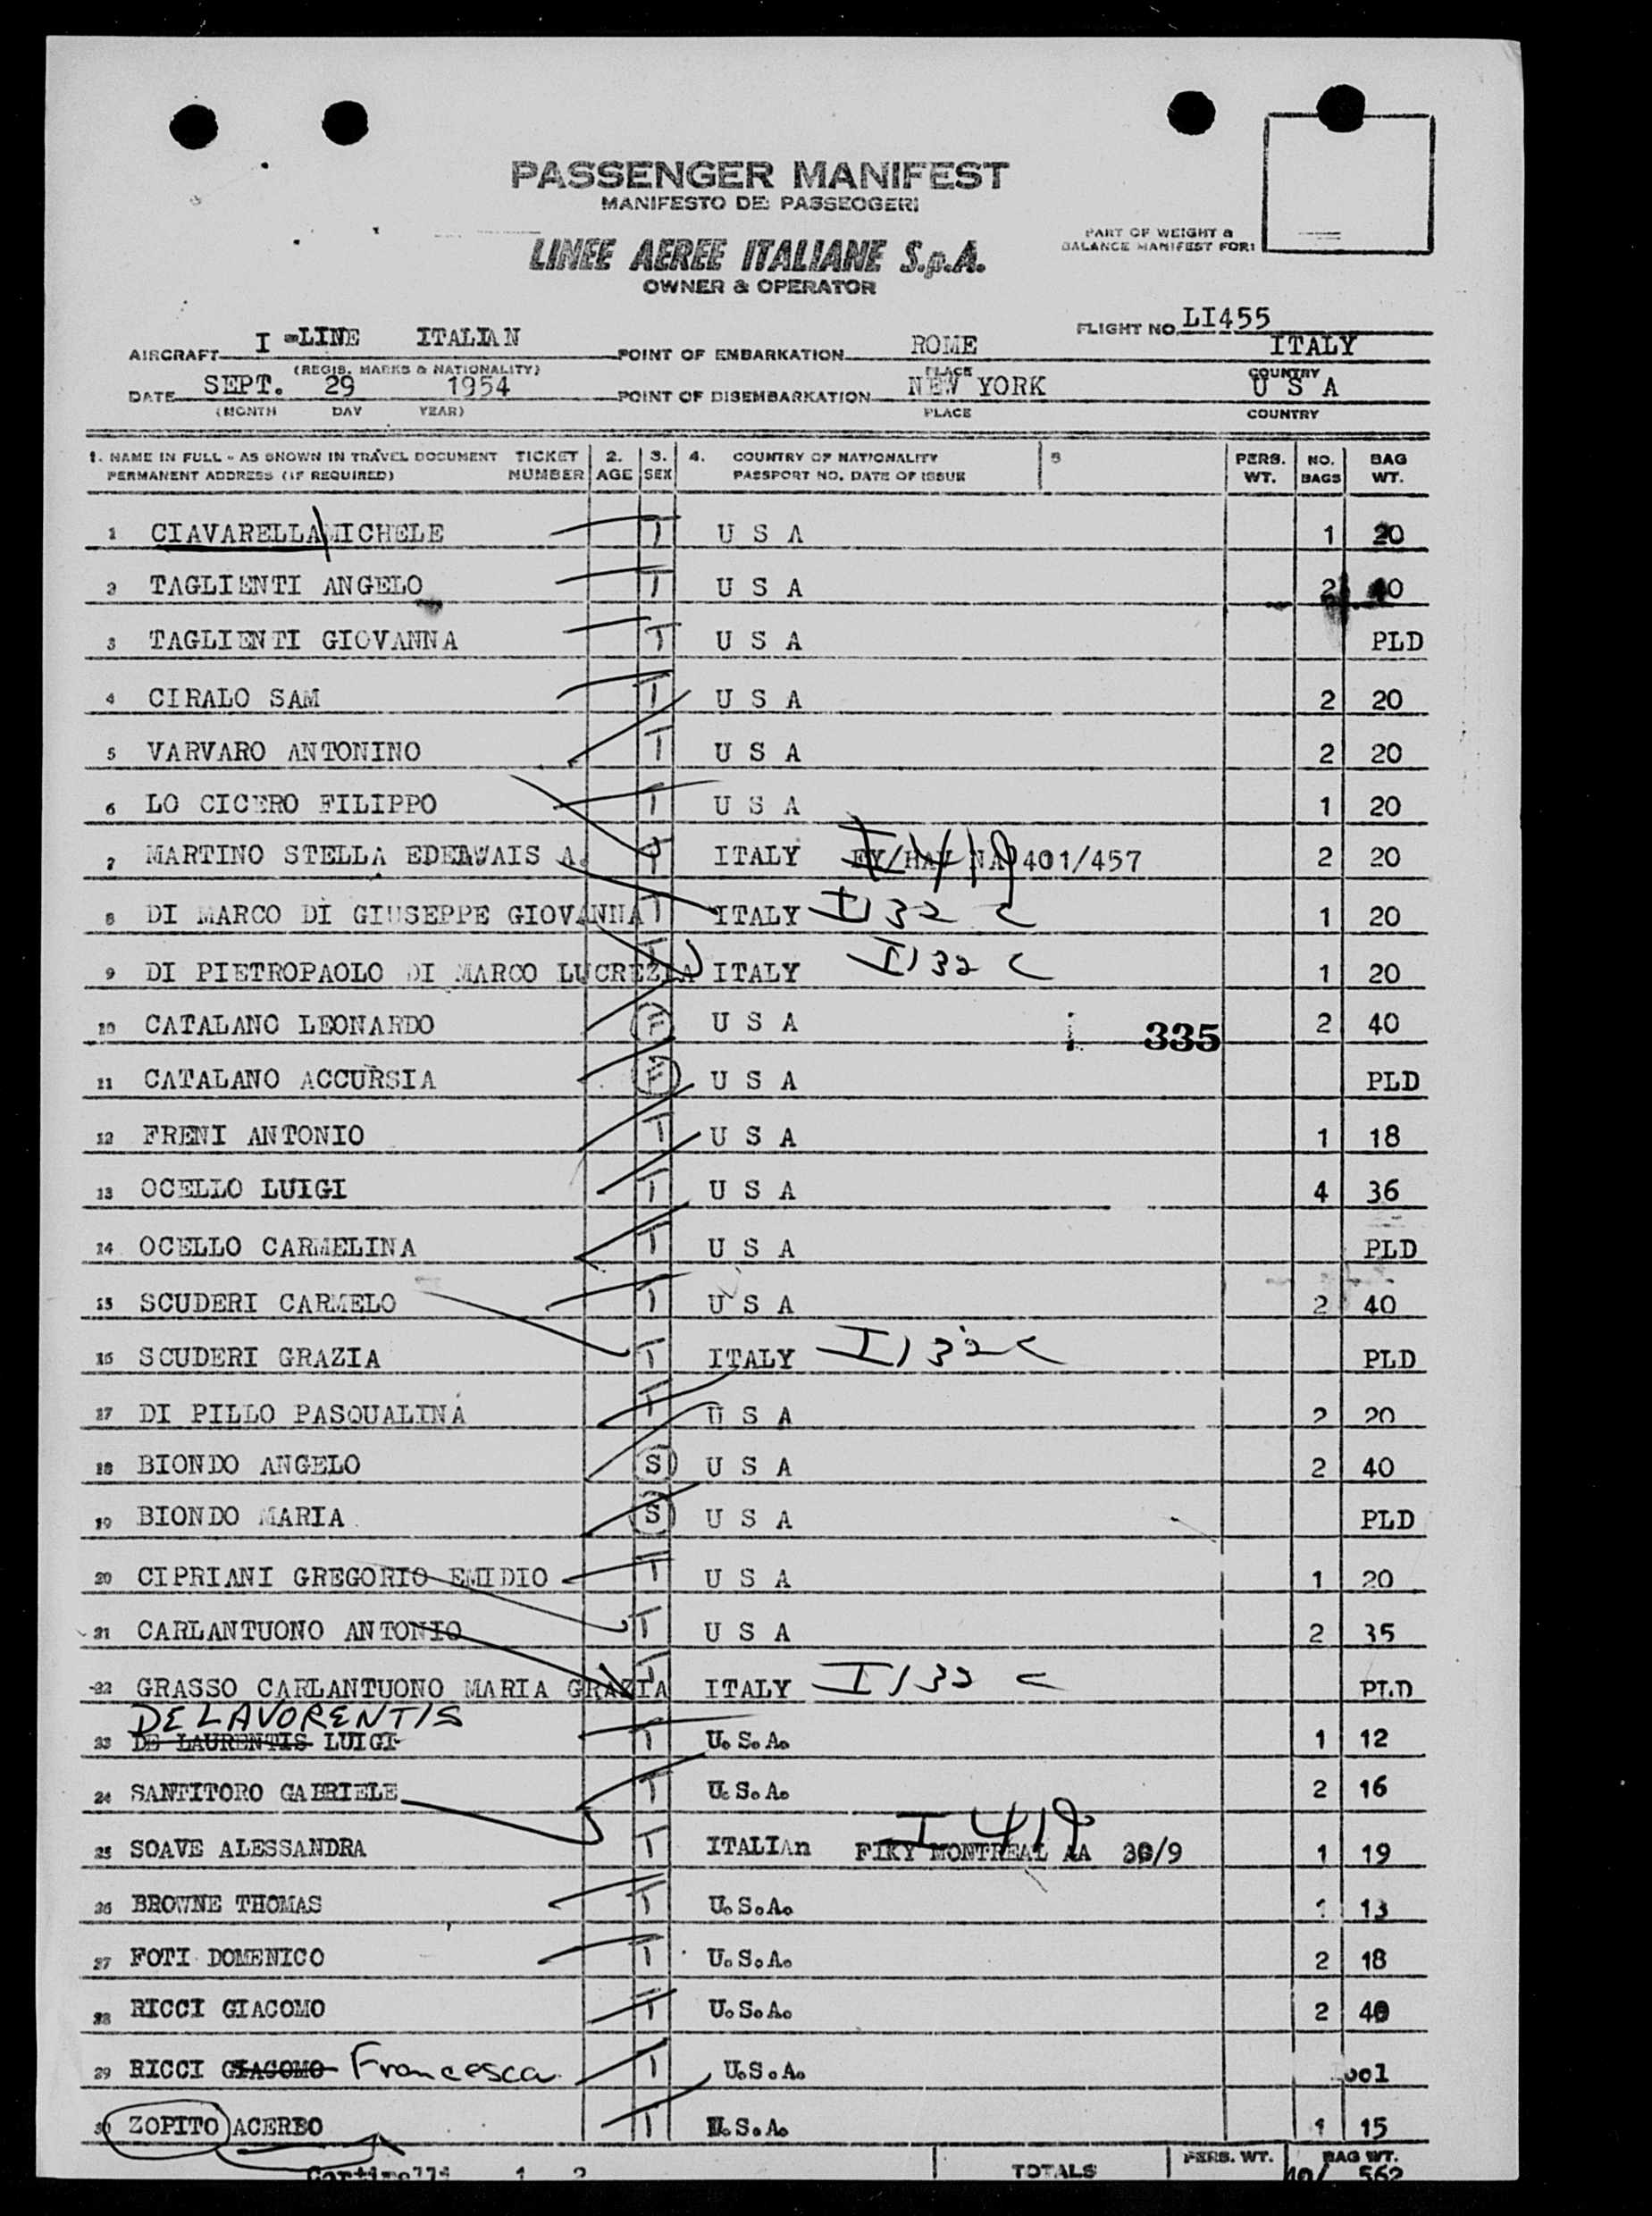 PASSENGER MANIFEST
MANIFESTO DEI PASSEOGERI
LINEE AEREE ITALIANE S.p.A.
OWNER & OPERATOR
PART OF WEIGHT &
BALANCE MANIFEST FOR:
FLIGHT NO. LI455
AIRCRAFT I -LINE ITALIAN POINT OF EMBARKATION ROME ITALY
(REGIS. MARKS & NATIONALITY) PLACE COUNTRY
DATE SEPT. 29 1954 POINT OF DISEMBARKATION NEW YORK U S A
(MONTH DAY YEAR) PLACE COUNTRY
1. NAME IN FULL - AS SHOWN IN TRAVEL DOCUMENT TICKET 2. 3. 4. COUNTRY OF NATIONALITY 5 PERS. NO. BAG
PERMANENT ADDRESS (IF REQUIRED) NUMBER AGE SEX PASSPORT NO. DATE OF ISSUE WT. BAGS WT.
1 CIAVARELLA MICHELE T U S A 1 20
2 TAGLIENTI ANGELO T U S A 2 40
3 TAGLIENTI GIOVANNA T U S A PLD
4 CIRALO SAM T U S A 2 20
5 VARVARO ANTONINO T U S A 2 20
6 LO CICERO FILIPPO T U S A 1 20
7 MARTINO STELLA EDELWAIS A. T ITALY I 419 401/457 2 20
8 DI MARCO DI GIUSEPPE GIOVANNA T ITALY I 132 C 1 20
9 DI PIETROPAOLO DI MARCO LUCREZIA T ITALY I 132 C 1 20
10 CATALANO LEONARDO F U S A 335 2 40
11 CATALANO ACCURSIA F U S A PLD
12 FRENI ANTONIO T U S A 1 18
13 OCELLO LUIGI T U S A 4 36
14 OCELLO CARMELINA T U S A PLD
15 SCUDERI CARMELO T U S A 2 40
16 SCUDERI GRAZIA T ITALY I 132 C PLD
17 DI PILLO PASQUALINA T U S A 2 20
18 BIONDO ANGELO S U S A 2 40
19 BIONDO MARIA S U S A PLD
20 CIPRIANI GREGORIO EMIDIO T U S A 1 20
21 CARLANTUONO ANTONIO T U S A 2 35
22 GRASSO CARLANTUONO MARIA GRAZIA T ITALY I 132 C PLD
DE LAVORENTIS
23 DE LAURENTIS LUIGI T U.S.A. 1 12
24 SANTITORO GABRIELE T U.S.A. 2 16
25 SOAVE ALESSANDRA T ITALIAn I 419 FIKY MONTREAL AA 30/9 1 19
26 BROWNE THOMAS T U.S.A. 1 13
27 FOTI DOMENICO T U.S.A. 2 18
28 RICCI GIACOMO T U.S.A. 2 40
29 RICCI GIACOMO Francesca T U.S.A. ool
30 ZOPITO ACERBO T U.S.A. 1 15
TOTALS PERS. WT. BAG WT.
562